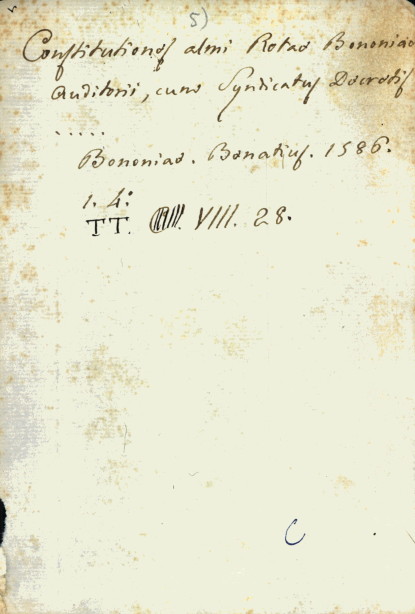 5)
Constitutiones almi Rotae Bononiae
Auditorii, cum Syndicatus Decretis
.....
Bononiae. Benatius. 1586.
1. 4:
TT. VIII. 28.
C